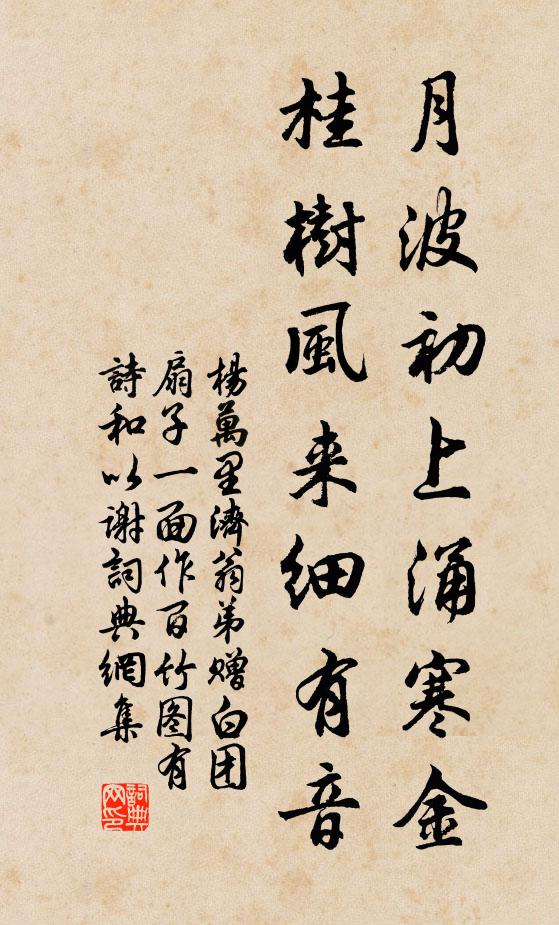 月波初上涌寒金
桂樹風来细有音
楊萬里濟翁弟赠白团
扇子一面作百竹图有
詩和以谢詞典網集
詞典网印